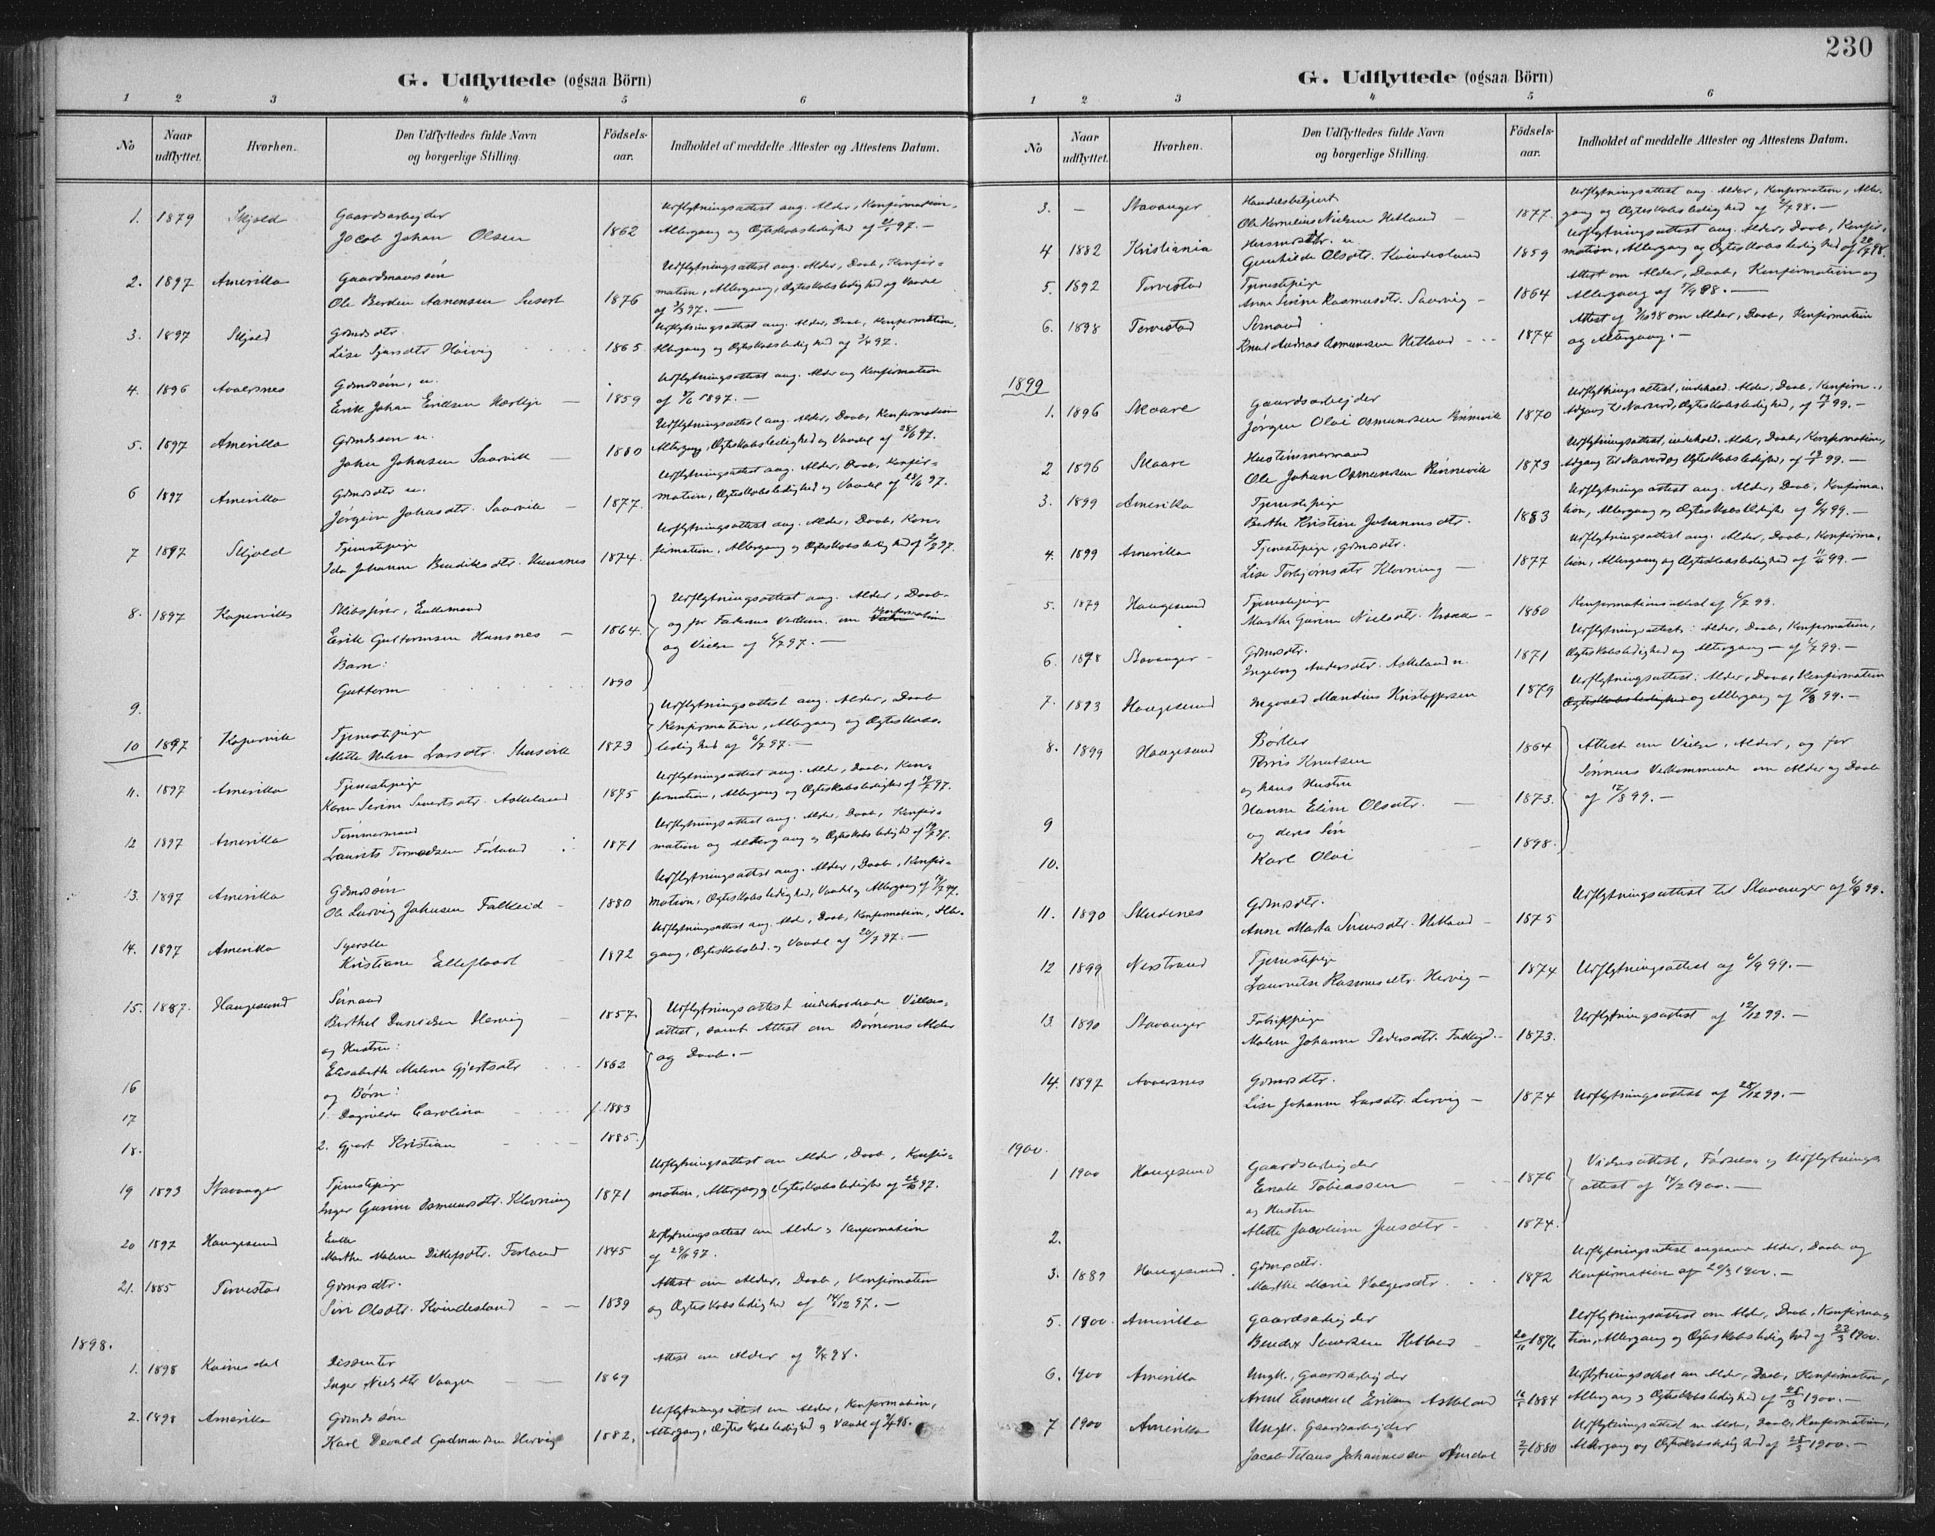 230
G. Udflyttede (ogsaa Börn)
1 2 3 4 5 6
No Naar udflyttet. Hvorhen. Den Udflyttedes fulde Navn og borgerlige Stilling. Födsels-aar. Indholdet af meddelte Attester og Attestens Datum.
1. 1879 Skjold Gaardsarbejder
Jacob Johan Olsen 1862
Udflytningsattest ang. Alder, Konfirmation,
Altergang og Ægteskabsledighed af
2. 1897 Amerika Gaardmandsøn
Ole Aanensen 1876
Udflytningsattest ang. Alder, Daab, Konfir-
mation, Altergang, Ægteskabsledighed og Vandel
3. 1897 Skjold Gmdsdtr.
Lise 1865
Udflytningsattest ang. Alder, Daab, Konfirmation,
Altergang og Ægteskabsledighed af
4. 1896 Avaersnes Gmdsøn, u.
Erik Johan Eriksen 1859
Udflytningsattest ang. Alder og Konfirmation
af 1897.—
5. 1897 Amerika Gmdssøn u.
John Johnsen Saarvik — 1880
Udflytningsattest ang. Alder, Daab, Konfirmation
Altergang, Ægteskabsledighed og Vandel af 28/6 97.
6 1897 Amerika Gmdsdtr u.
Johnsdtr. Saarvik — 1877.
Udflytningsattest ang. Alder, Daab, Konfir-
mation, Ægteskabsledighed og Vandel af 28/6 97.
7 1897 Skjold Tjenestepige
Ida Johanne Bendiksdtr. Hansnes 1874.
Udflytningsattest ang. Alder, Daab, Kon-
firmation, Altergang og Ægteskabsledighed af
8. 1897 Kopervik Enkemand
Erik Guttormsen Hansnes — 1864.
Barn:
Guttorm 1890
Udflytningsattest ang. Alder, Daab
og for Faderens Vedkom. om Konfirmation
og Vielse af 6/7 97.—
9.
10 1897 Kopervik Tjenestepige
Mette Larsdtr. 1873
Udflytningsattest ang. Alder, Daab
Konfirmation, Altergang og Ægteskabs-
ledighed af 6/7 97.—
11. 1897 Amerika Tjenestepige
Karen Serine Sivertsdtr. Askeland 1875
Udflytningsattest ang. Alder, Daab, Kon-
firmation, Altergang og Ægteskabsledighed af 19/7 97.
12 1897 Amerika Tømmermand
Laurits Førland 1871
Udflytningsattest ang. Alder, Daab, Konfir-
mation og Altergang og Ægteskabsledighed af 19/7 97.
13. 1897 Amerika Gmdssøn
Ole Ludvig Johnsen Falkeid 1880
Udflytningsattest ang. Alder, Daab, Konfir-
mation, Ægteskabsledighed, Vandel og Altergang af 19/7 97.
14. 1897 Amerika Syerske
Kristiane 1872
Udflytningsattest ang. Alder, Daab, Konfirmation, Alter-
gang, Ægteskabsled. og Vandel af 20/7 97.—
15. 1887. Haugesund Sømand
Berthel Davidsen Hervig 1857.
og Hustru:
Elisabeth Malene Gjertsdtr 1862
og Børn:
1. Carolina f. 1883
2. Gjert Kristian 1885.
Udflytningsattest indeholdende Vielses-
attest, samt Attest om Børnenes Alder
og Daab.—
16
17
18.
19 1893 Stavanger Tjenestepige
Inger Gurine Osmundsdtr. Klovning 1871
Udflytningsattest om Alder, Daab, Konfir-
mation, Altergang og Ægteskabsledighed af
20 1897 Haugesund Enke
Marthe Malene Ditlefsdtr. Førland 1845
Udflytningsattest om Alder og Konfirmation
21. 1885 Torvestad Gmdsdtr.
Siri Olsdtr. Kvindesland — — 1839
Attest om Alder, Daab, Konfirmation
og Ægteskabsledighed af 14/12 97.—
1898.
1. 1898 Dissenter
Inger Nielsdtr Vaagen — — 1869
Attest om Alder af 98.—
2. 1898 Amerika Gmdssøn
Karl Gudmundsen Hervig 1882.
Udflytningsattest om Alder, Konfirmation,
Altergang, Ægteskabsledighed og Vandel af 98.—
G. Udflyttede (ogsaa Börn)
1 2 3 4 5 6
No Naar udflyttet. Hvorhen. Den Udflyttedes fulde Navn og borgerlige Stilling. Födsels-aar. Indholdet af meddelte Attester og Attestens Datum.
3. — Stavanger Handelsbetjent
Ole Kornelius Nielsen Hetland — 1877.
Udflytningsattest ang. Alder, Konfirmation, Alter-
gang og Ægteskabsledighed af 98.—
4 1882 Kristiania
Gunhilde Olsdtr. Kvindesland 1859
Udflytningsattest ang. Alder, Daab, Konfir-
mation, Altergang og Ægteskabsledighed af 98.
5. 1892 Torvestad Tjenestepige
Anne Serine Rasmusdtr. Saarvig — 1864
Attest om Alder, Daab, Konfirmation og
Altergang af 98.—
6. 1898 Torvestad Sømand
Knut Andreas Osmundsen Hetland 1874
Attest af 98 om Alder, Daab, Konfirmation
og Altergang.—
1899
1. 1896 Skaare Gaardsarbejder
Jørgen Olai Osmundsen Rinnevik 1870
Udflytningsattest, indehold. Alder, Daab, Konfirm.,
Adgang til Nadverd, Ægteskabsledighed, af 99.—
2 1896 Skaare Hustømmermand
Ole Johan Osmundsen Rinnevik 1873
Udflytningsattest, indehold. Alder, Daab, Konfirmation,
Adgang til Nadverd og Ægteskabsledighed, af 99.—
3. 1899 Amerika Tjenestepige
Berthe Kristine Johannesdtr. 1883
Udflytningsattest ang. Alder, Daab, Konfirma-
tion, Altergang og Ægteskabsledighed af 6/4 99.—
4. 1899 Amerika Tjenestepige, Gmdsdtr.
Lise Torbjørnsdtr Klovning — 1877
Udflytningsattest ang. Alder, Daab, Konfirma-
tion, Altergang og Ægteskabsledighed af 11/4 99.—
5. 1879 Haugesund Tjenestepige
Marthe Gurine Nielsdtr. 1860
Konfirmationsattest af 99.
6. 1898 Stavanger — Gmdsdtr.
Ingeborg Andersdtr. Askeland u. 1871
Udflytningsattest: Alder, Daab, Konfirmation,
Ægteskabsledighed og Altergang — af 99.—
7. 1893 Haugesund Ingvald Mandius Kristoffersen 1879
Udflytningsattest: Alder, Daab, Konfirmation
Ægteskabsledighed og Altergang af 99.—
8. 1899 Haugesund Bødker
Knutsen 1864
og hans Hustru
Hanne Eline Olsdtr. — 1873.
og deres Søn
Karl Olai 1898.
Attest om Vielse, Alder, og for
Sønnens Vedkommende om Alder og Daab
af 12/8 99.—
9
10.
11. 1890 Skudenes Gmdsdtr.
Anne Marta Sivertsdtr. Hetland — 1875
Udflytningsattest til Stavanger af 6/9 99.
12 1899 Nerstrand Tjenestepige
Lauritse Rasmusdtr. Hervig — 1874
Udflytningsattest af 6/9 99.—
13. 1890 Stavanger Fabrikpige
Malene Johanne Pedersdtr. 1873.
Udflytningsattest af 12/12 99.—
14. 1897 Avaersnes Gmdsdtr.
Lise Johanne Larsdtr. Lervig — 1874
Udflytningsattest af 28/12 99.—
1900.
1 1900 Haugesund Gaardsarbejder
Enok Tobiassen 1876
og Hustru
Alette Jacobine 1874.
Vielsesattest, Fødsels og Udflytnings-
attest af 14/2 1900.—
2.
3. 1889 Haugesund. Gmdsdtr.
Marthe Marie Holgersdtr. 1872
Udflytningsattest angaaende Alder, Daab og
Konfirmation af 20/3 1900.—
5. 1900. Amerika Gaardsarbejder
Bendix Sivertsen Hetland 20/11 1876
Udflytningsattest om Alder, Daab, Konfirma-
tion, Altergang og Ægteskabsledighed af 23/3 1900.
6. 1900 Amerika Ungk., Gaardsarbejder
Arent Emanuel Eriksen Askeland 1884
Udflytningsattest om Alder, Daab, Konfirmation,
Altergang og Ægteskabsledighed af 28/3 1900.—
7 1900 Amerika Ungk. Gaardsarbejder
Jacob Johannessen 1880
Udflytningsattest om Alder, Daab, Konfirmation,
Altergang og Ægteskabsledighed af 28/3 1900.—